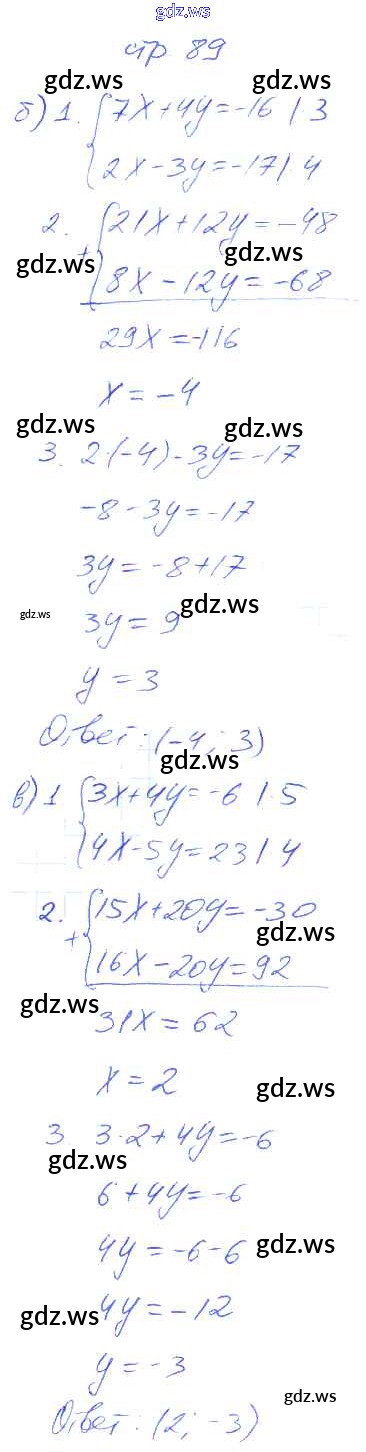 gdz.ws
стр 89
gdz.ws gdz.ws
б) 1. {7x+4y=-16 |·3
2x-3y=-17|·4
2. {21x+12y=-48
+ gdz.ws gdz.ws
8x-12y=-68
29x=-116
x=-4
gdz.ws gdz.ws
3. 2·(-4)-3y=-17
-8-3y=-17
3y=-8+17
gdz.ws 3y=9 gdz.ws
y=3
Ответ: (-4; 3)
gdz.ws
в) 1 {3x+4y=-6 |·5
4x-5y=23|·4
2. {15x+20y=-30
+ gdz.ws
16x-20y=92
gdz.ws
31x=62
x=2 gdz.ws
3 3·2+4y=-6
gdz.ws
6+4y=-6
4y=-6-6 gdz.ws
gdz.ws 4y=-12
y=-3
gdz.ws
Ответ: (2; -3)